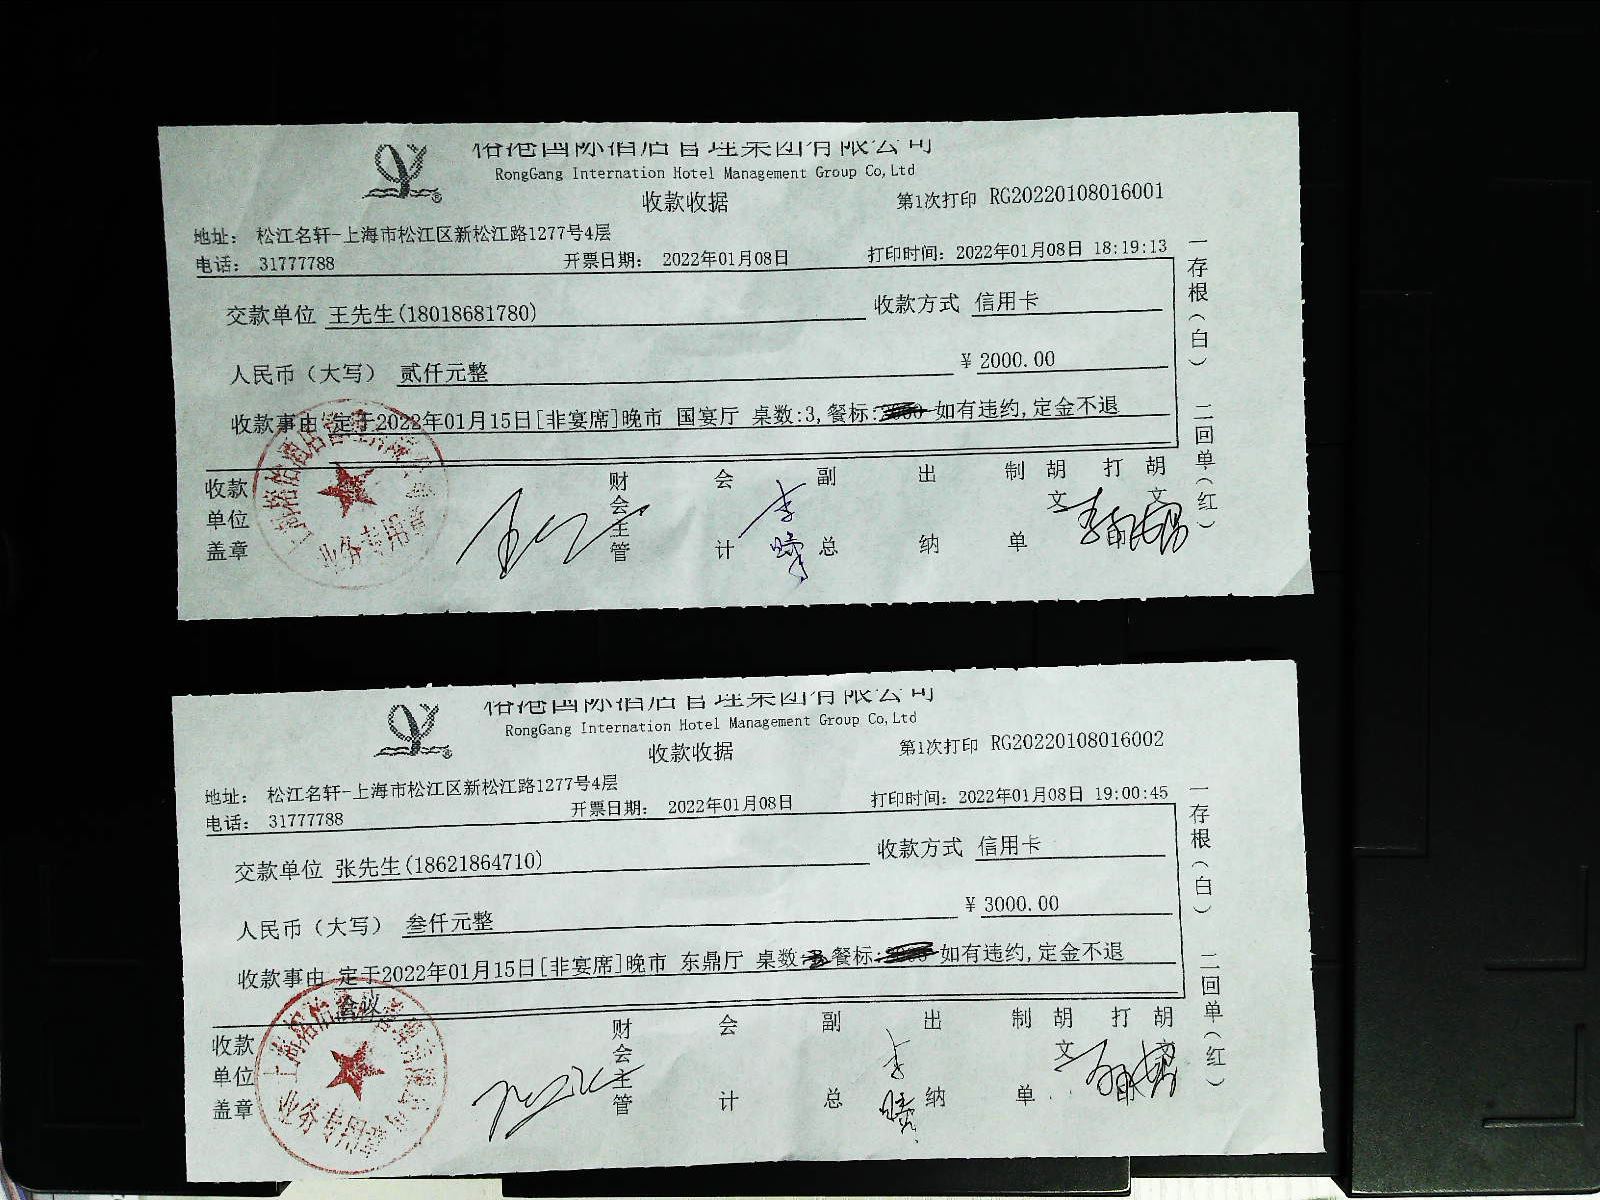 裕港国际酒店管理集团有限公司
RongGang Internation Hotel Management Group Co,Ltd
收款收据
第1次打印 RG20220108016001
地址： 松江名轩-上海市松江区新松江路1277号4层
电话： 31777788 开票日期： 2022年01月08日 打印时间：2022年01月08日 18:19:13
交款单位 王先生(18018681780) 收款方式 信用卡
人民币（大写） 贰仟元整 ¥ 2000.00
收款事由 定于2022年01月15日[非宴席]晚市 国宴厅 桌数:3,餐标: 如有违约,定金不退
收款单位盖章 财会主管 会计 副总 出纳 制单 胡文 打 胡文
一存根（白） 二回单（红）
业务专用章
裕港国际酒店管理集团有限公司
RongGang Internation Hotel Management Group Co,Ltd
收款收据
第1次打印 RG20220108016002
地址： 松江名轩-上海市松江区新松江路1277号4层
电话： 31777788 开票日期： 2022年01月08日 打印时间：2022年01月08日 19:00:45
交款单位 张先生(18621864710) 收款方式 信用卡
人民币（大写） 叁仟元整 ¥ 3000.00
收款事由 定于2022年01月15日[非宴席]晚市 东鼎厅 桌数: 餐标: 如有违约,定金不退
会议
收款单位盖章 财会主管 会计 副总 出纳 制单 胡文 打 胡文
一存根（白） 二回单（红）
业务专用章